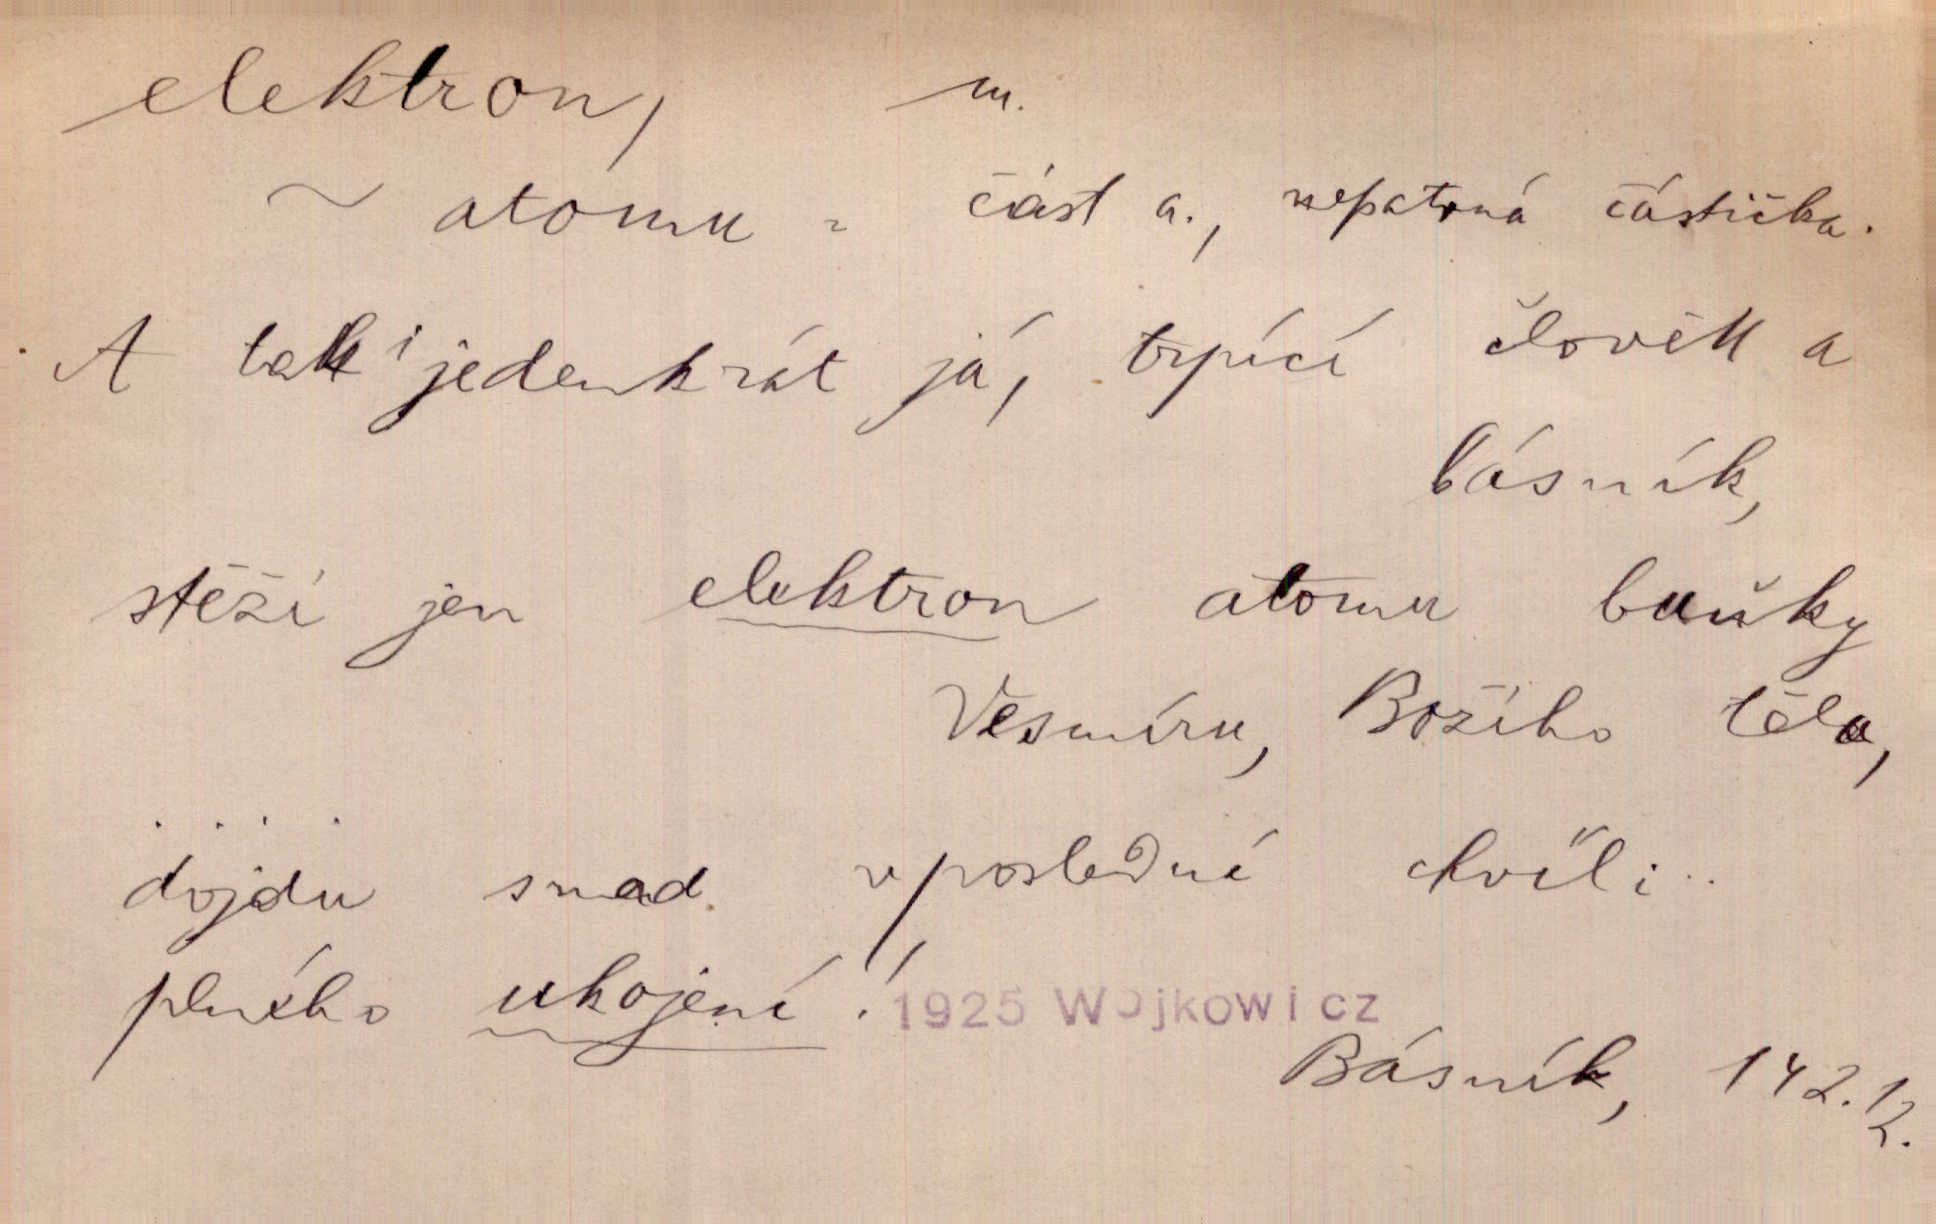 elektron, m.
~ atomu = část a., nepatrná částička.
A tak i jedenkrát já, trpící člověk a
básník,
stěží jen elektron atomu buňky
Vesmíru, Božího těla,
. . . .
dojdu snad v poslední chvíli..
plného ukojení!
1925 Wojkowicz
Básník, 142.12.